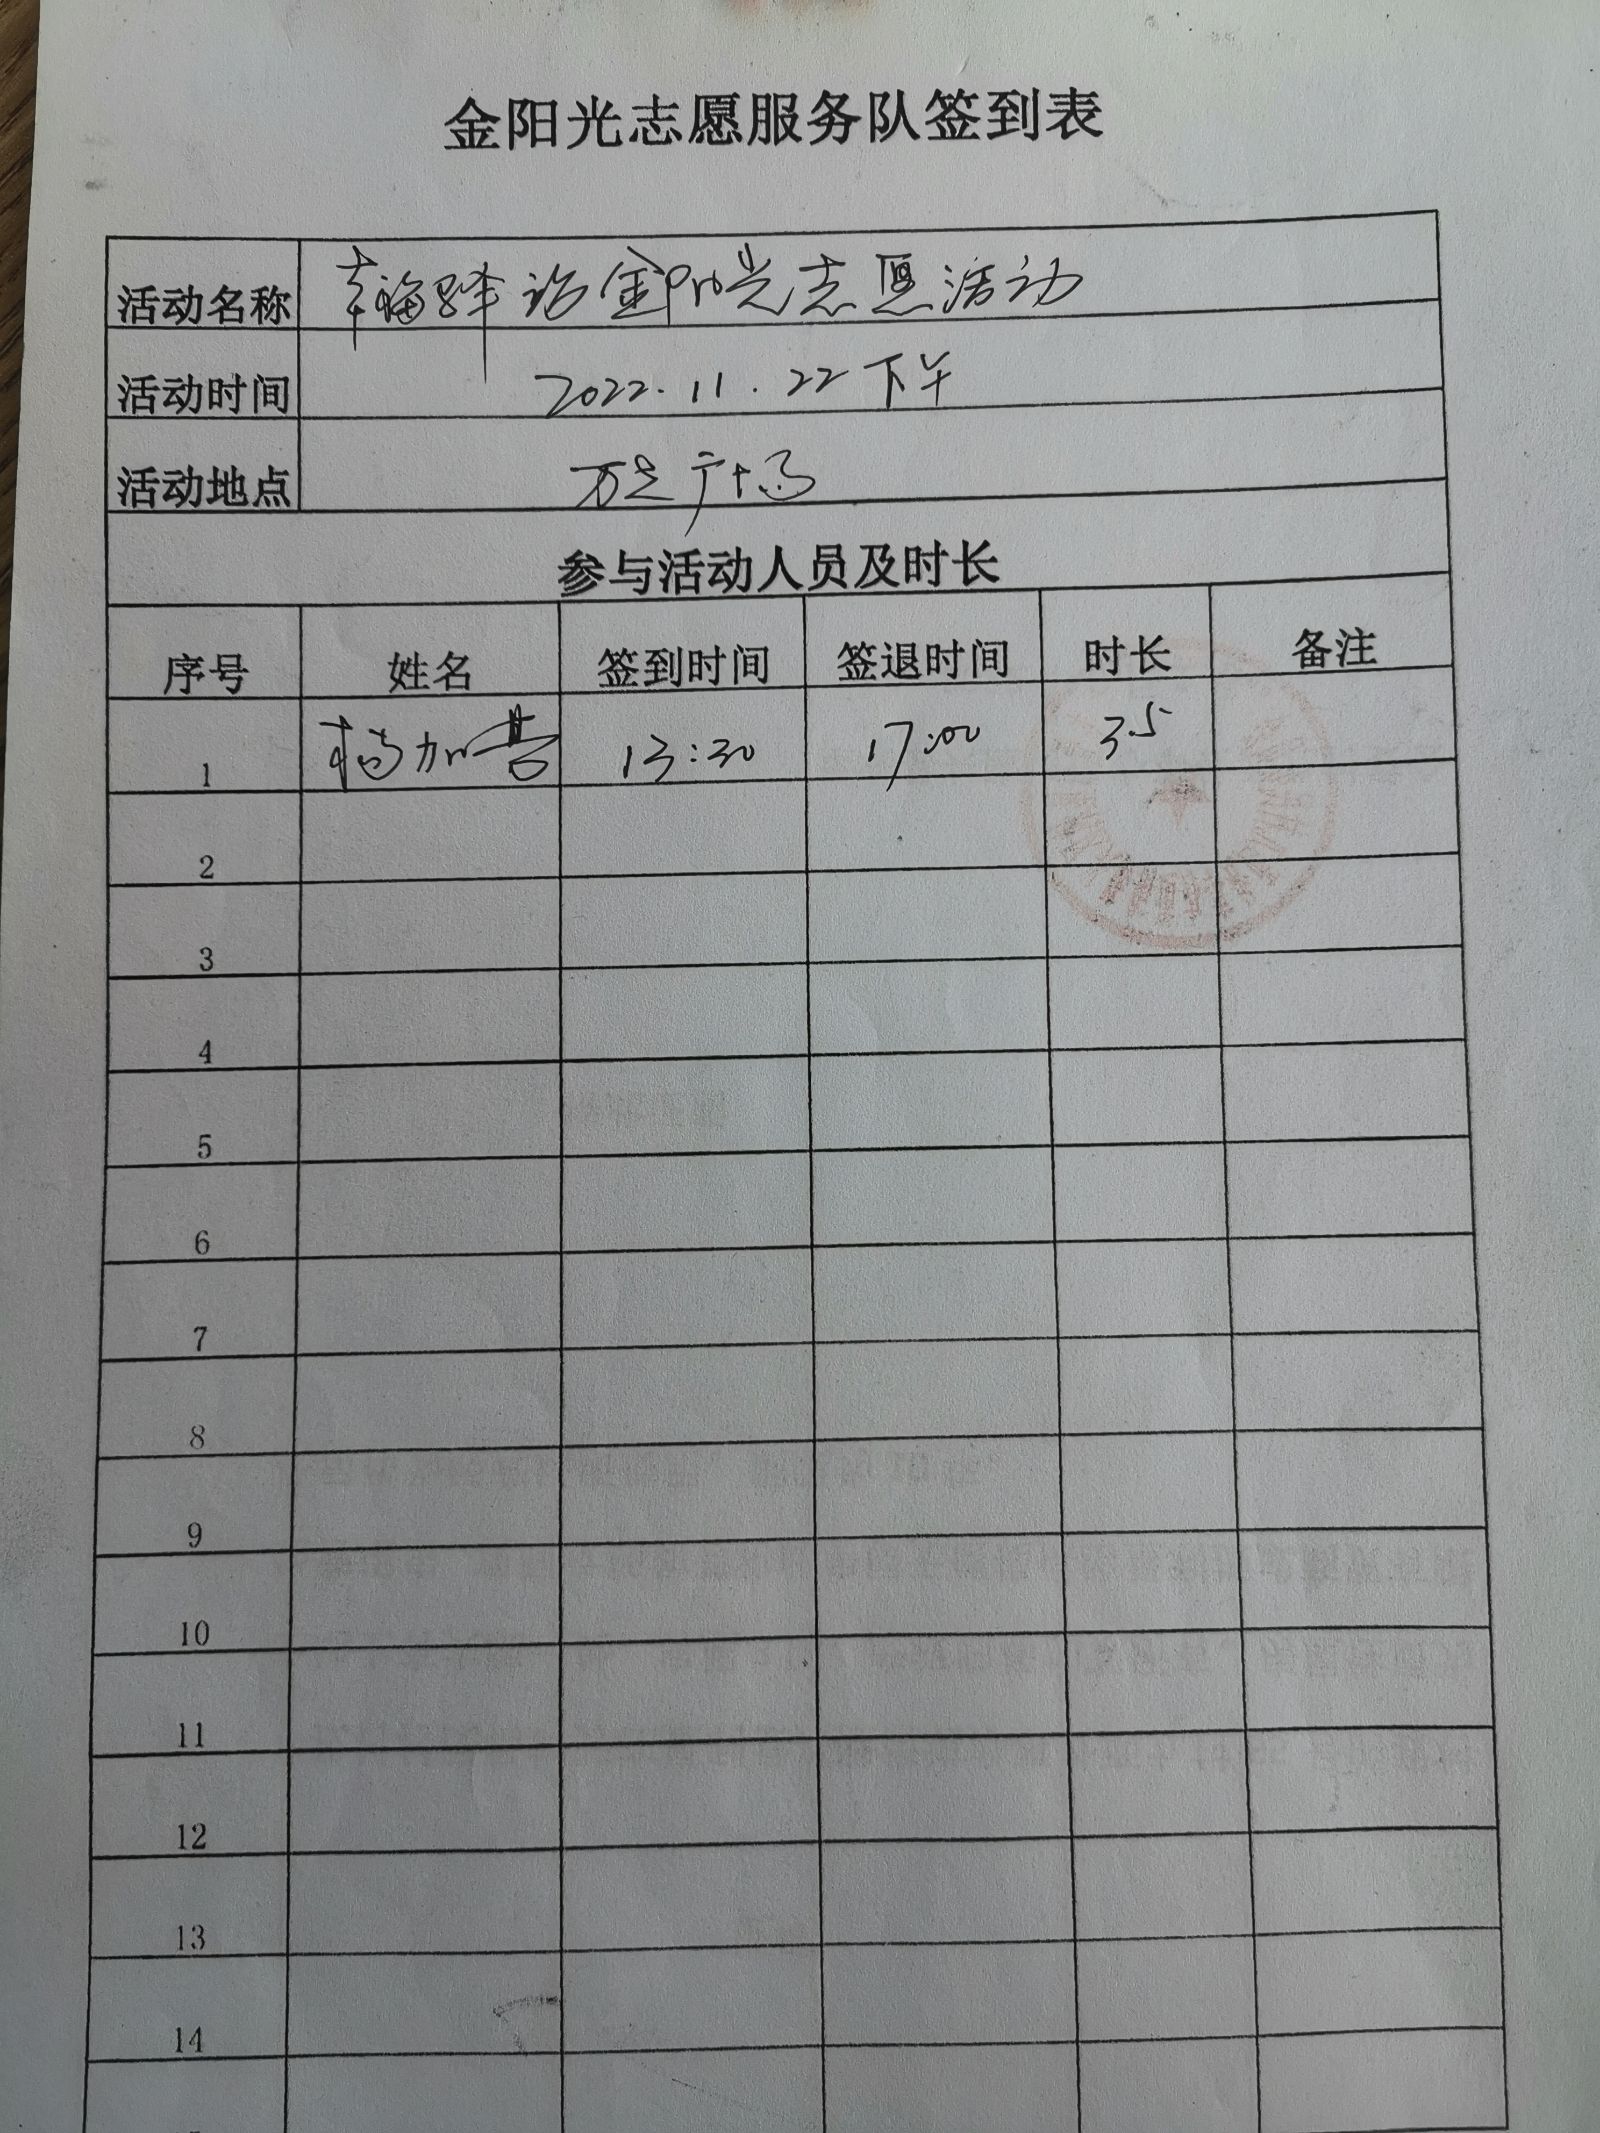 金阳光志愿服务队签到表
活动名称 幸福驿站金阳光志愿活动
活动时间 2022.11.22下午
活动地点 万达广场
参与活动人员及时长
序号 姓名 签到时间 签退时间 时长 备注
1 杨加营 13:30 17:00 3.5
2
3
4
5
6
7
8
9
10
11
12
13
14